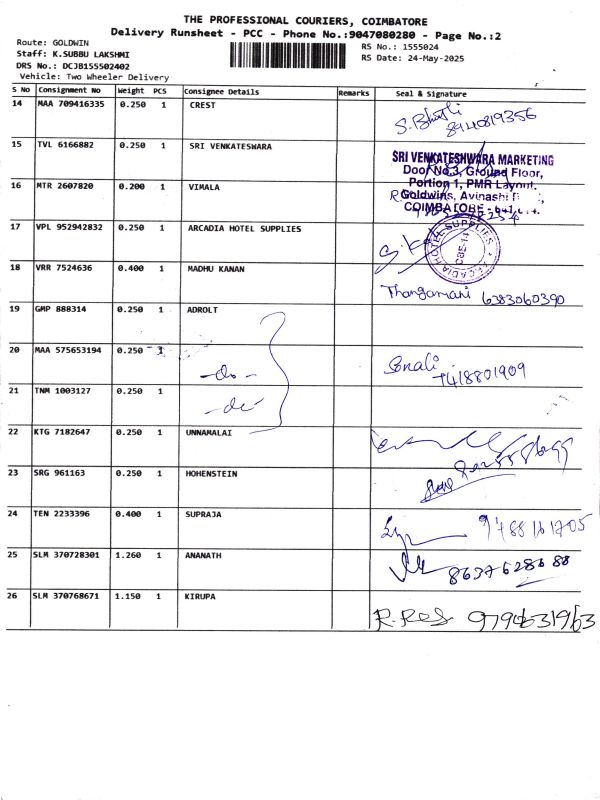 THE PROFESSIONAL COURIERS, COIMBATORE
Delivery Runsheet - PCC - Phone No.:9047080280 - Page No.:2
Route: GOLDWIN
Staff: K.SUBBU LAKSHMI
DRS No.: DCJB155502402
Vehicle: Two Wheeler Delivery
RS No.: 1555024
RS Date: 24-May-2025
S No Consignment No Weight PCS Consignee Details Remarks Seal & Signature
14 MAA 709416335 0.250 1 CREST S. Bharathi
8940819356
15 TVL 6166882 0.250 1 SRI VENKATESWARA
SRI VENKATESHWARA MARKETING
Door No.3, Ground Floor,
Portion 1, PMR Layout,
Goldwins, Avinashi
COIMBATORE - 641
16 MTR 2607820 0.200 1 VIMALA
17 VPL 952942832 0.250 1 ARCADIA HOTEL SUPPLIES
ARCADIA HOTEL SUPPLIES
CBE-14
18 VRR 7524636 0.400 1 MADHU KANAN Thangamani 6383060390
19 GMP 888314 0.250 1 ADROLT
20 MAA 575653194 0.250 1 -do- Sonali
7418801909
21 TNM 1003127 0.250 1 -do-
22 KTG 7182647 0.250 1 UNNAMALAI
23 SRG 961163 0.250 1 HOHENSTEIN
24 TEN 2233396 0.400 1 SUPRAJA 9488161705
25 SLM 370728301 1.260 1 ANANATH 8637628688
26 SLM 370768671 1.150 1 KIRUPA 9790631963